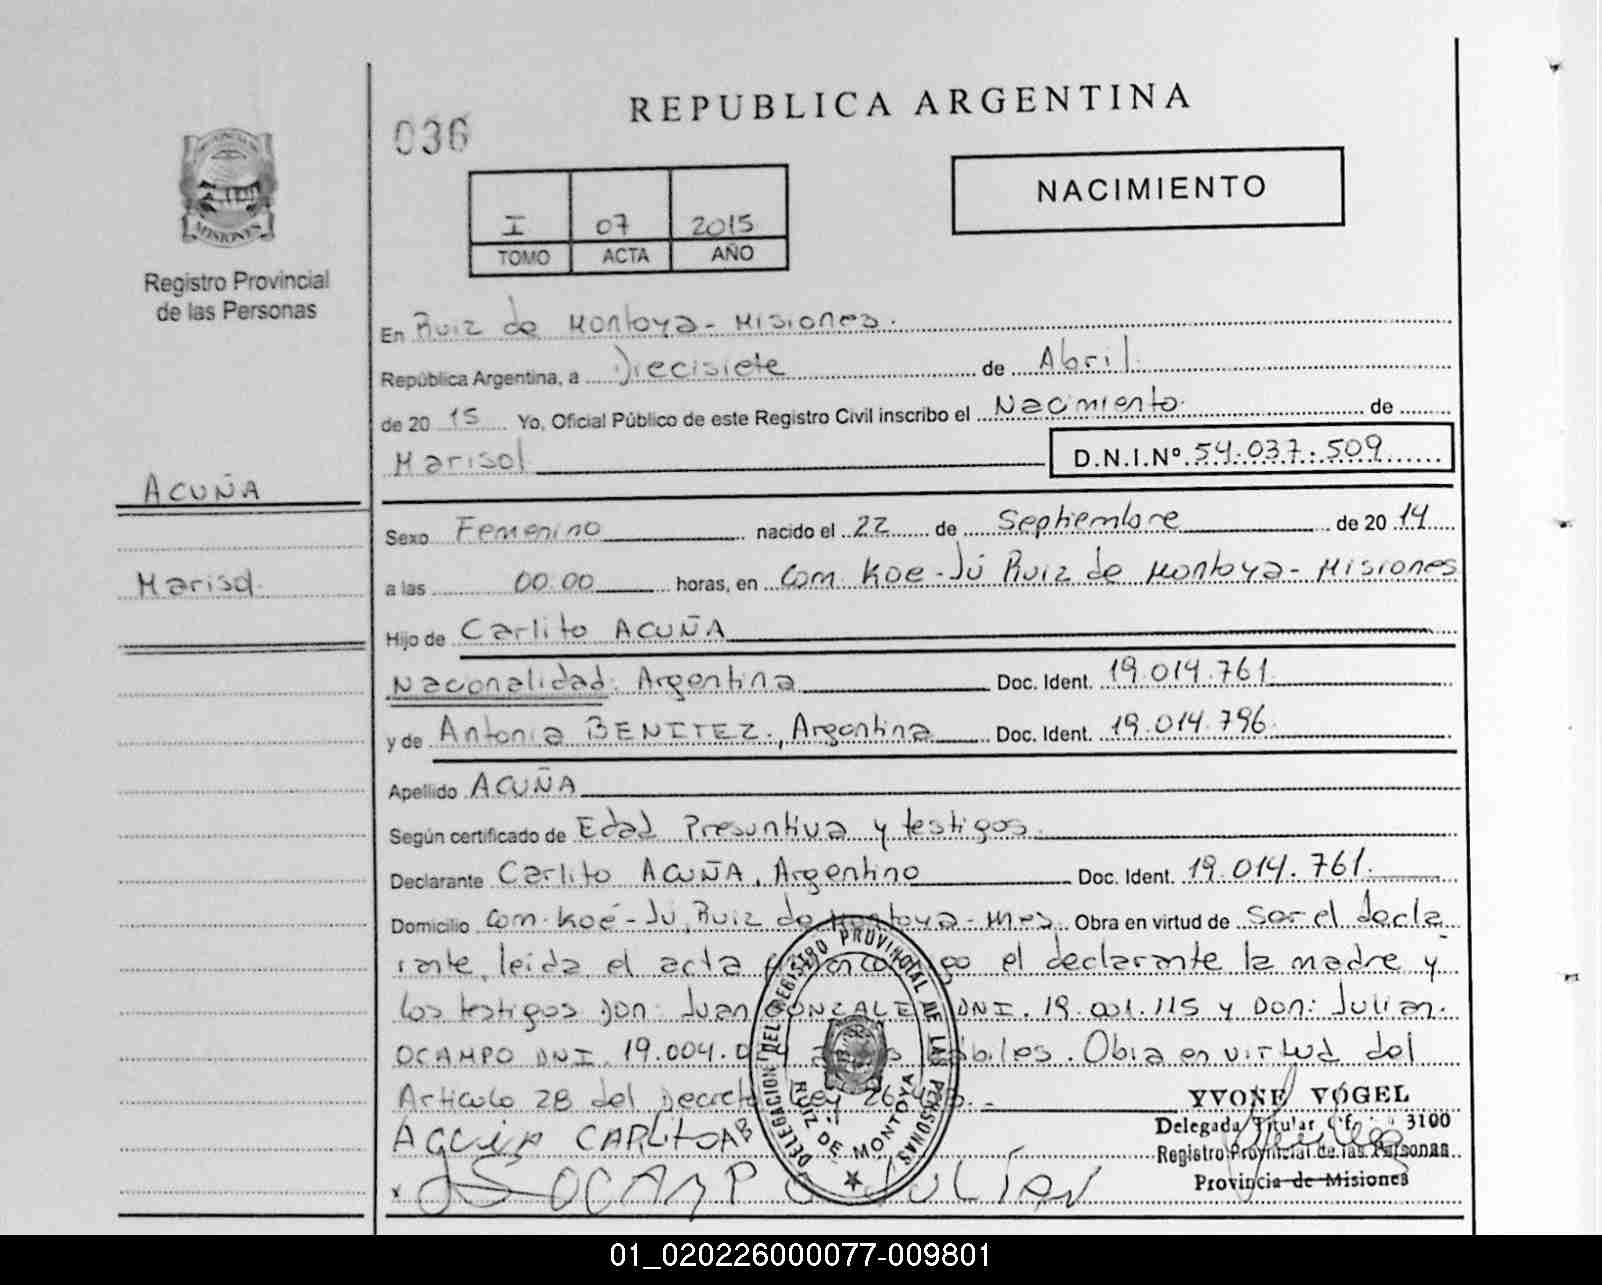 036
REPUBLICA ARGENTINA
MISIONES
Registro Provincial
de las Personas
I 07 2015
TOMO ACTA AÑO
NACIMIENTO
En Ruiz de Montoya - Misiones.
República Argentina, a Diecisiete de Abril.
de 20 15 Yo, Oficial Público de este Registro Civil inscribo el Nacimiento de
Marisol D.N.I.Nº 54.037.509
ACUÑA
Marisol
Sexo Femenino nacido el 22 de Septiembre de 20 14
a las 00.00 horas, en Com. Koe-Jú Ruiz de Montoya - Misiones
Hijo de Carlito ACUÑA
Nacionalidad: Argentina Doc. Ident. 19.014.761
y de Antonia BENITEZ., Argentina Doc. Ident. 19.014.796
Apellido ACUÑA
Según certificado de Edad Presuntiva y testigos.
Declarante Carlito ACUÑA, Argentino Doc. Ident. 19.014.761.
Domicilio Com. Koé-Jú, Ruiz de Montoya - Mnes. Obra en virtud de ser el decla
rante, leida el acta el declarante la madre y
los testigos Don: Juan GONZALEZ DNI. 19.001.115 y Don: Julian
OCAMPO DNI. 19.004. Obra en virtud del
Artículo 28 del Decreto Ley
ACUÑA CARLITO AB
OCAMPO JULIAN
DELEGACION DEL REGISTRO PROVINCIAL DE LAS PERSONAS
RUIZ DE MONTOYA
YVONE VOGEL
Delegada Titular 3100
Registro Provincial de las Personas
Provincia de Misiones
01_020226000077-009801